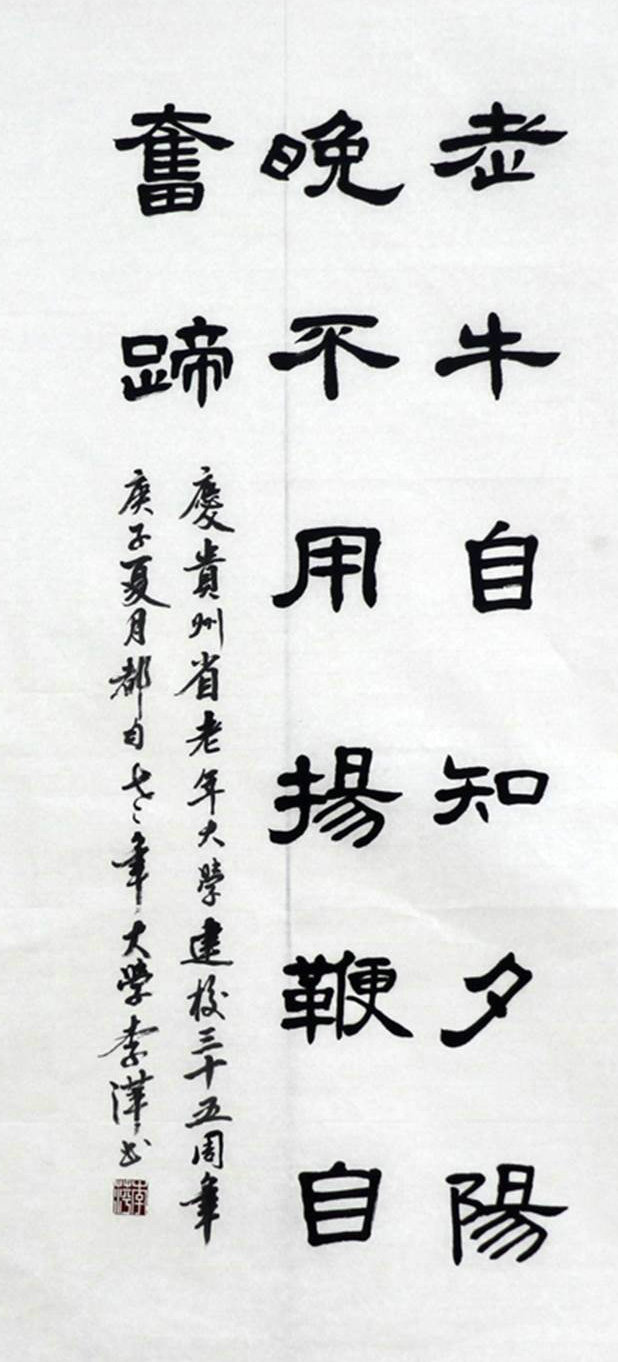 老牛自知夕陽
晚不用揚鞭自
奮蹄
慶貴州省老年大學建校三十五周年
庚子夏月都勻老年大學李萍書